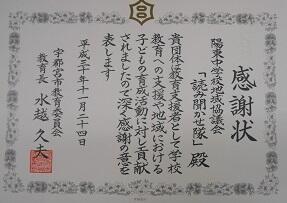 感謝状
陽東中学校地域協議会
「読み聞かせ隊」殿
貴団体は教育支援者として学校
教育への支援や地域における
子どもの育成活動に対し貢献
されましたので深く感謝の意を
表します
平成二十年十一月二十四日
宇都宮市教育委員会
教育長 水越久夫